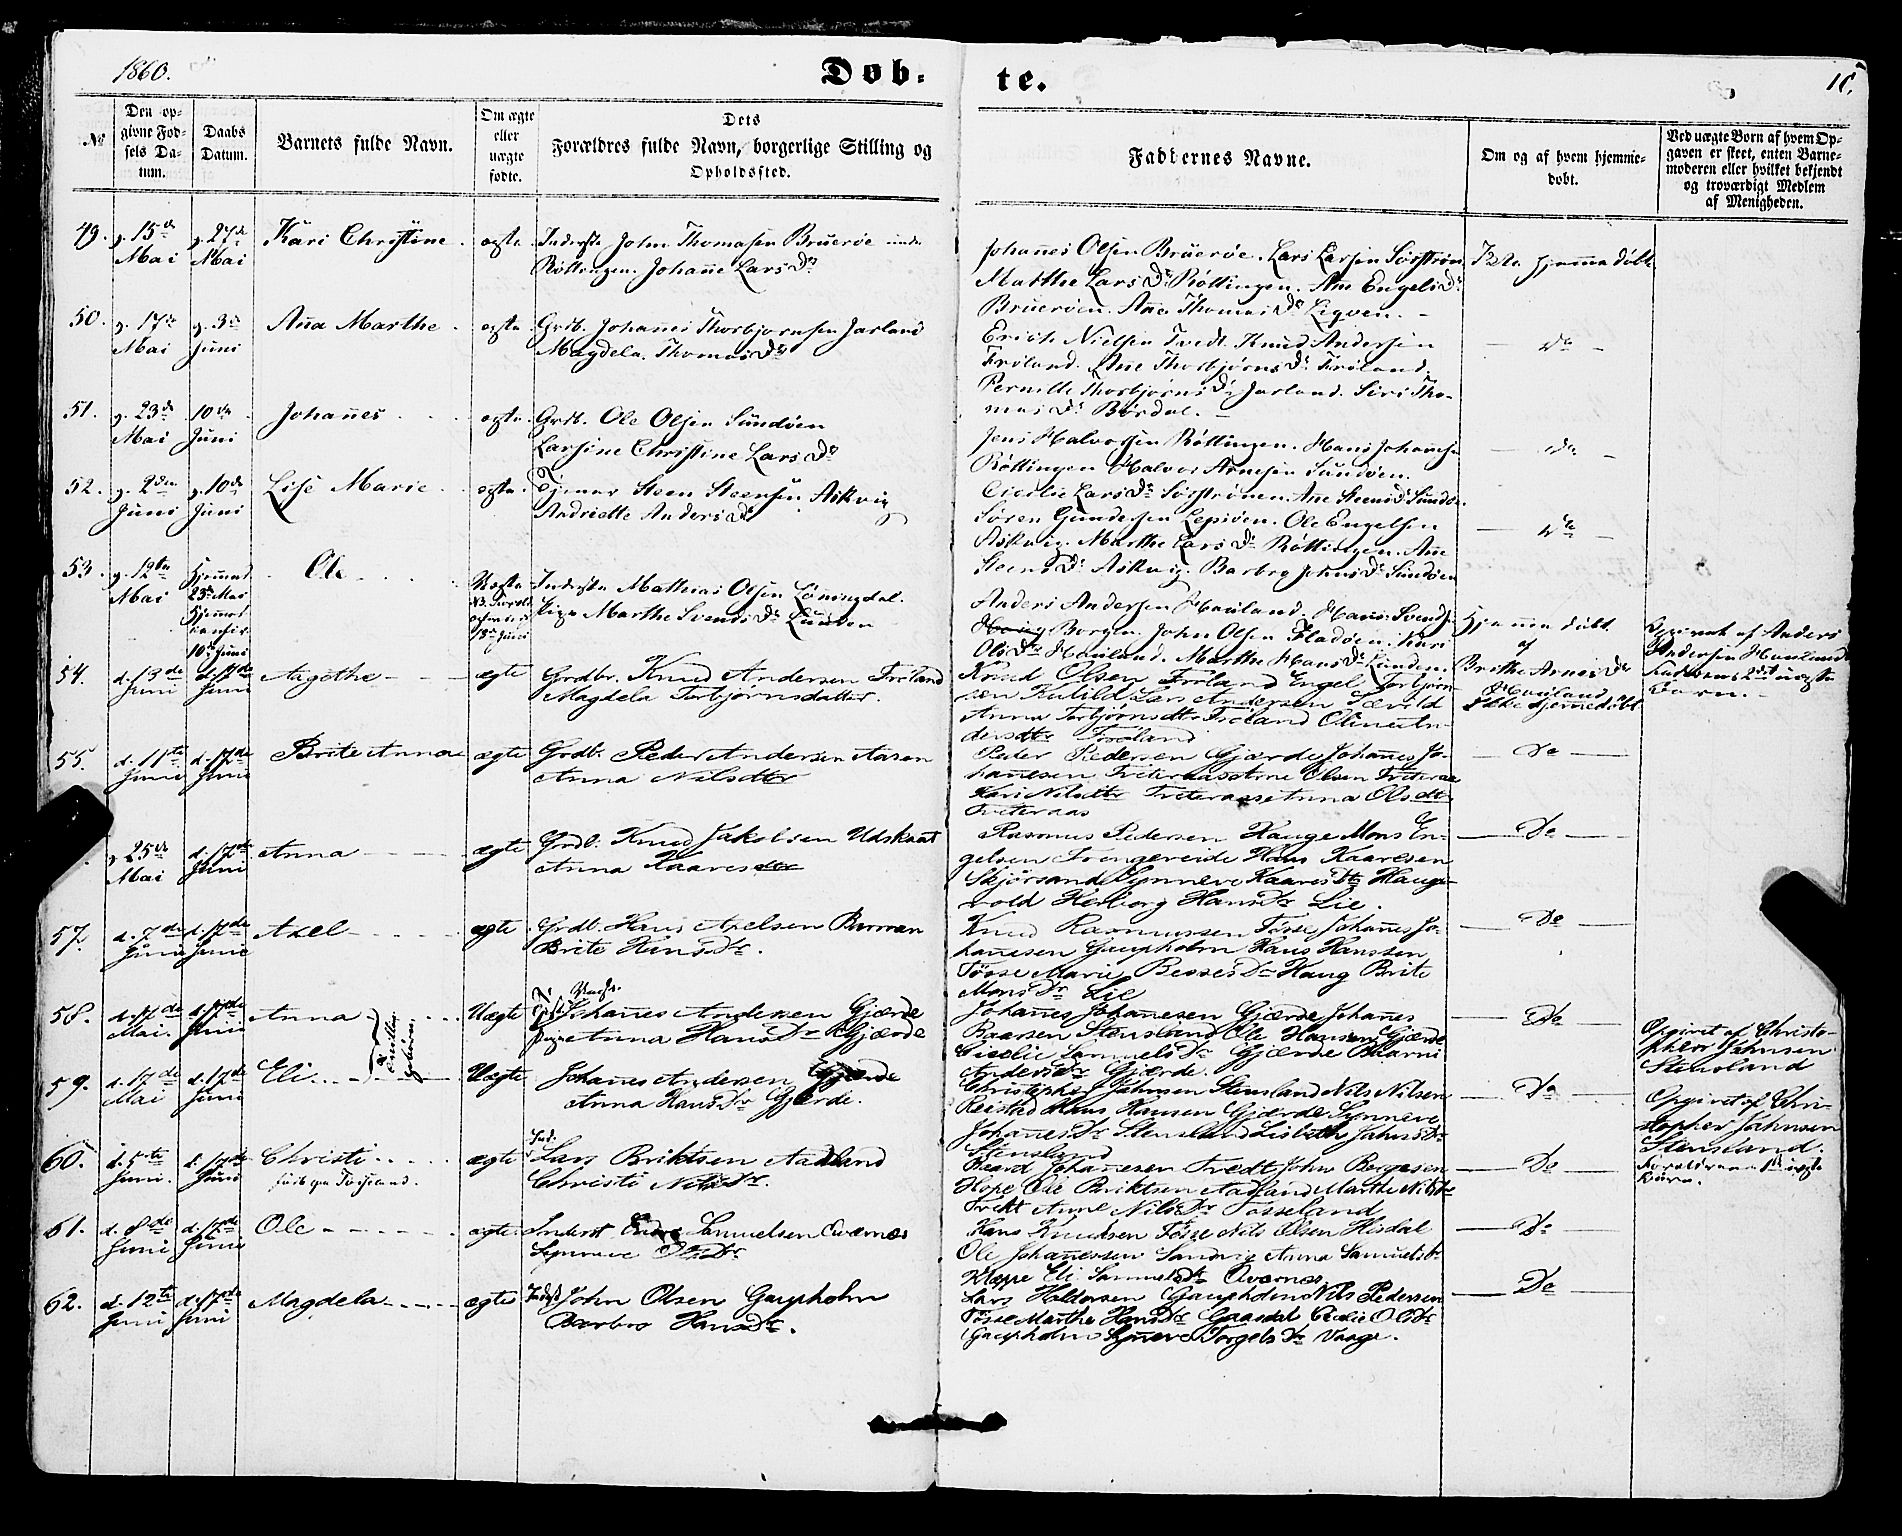 1860.
Døb-
te.
№
Den op-
givne Fød-
sels Da-
tum.
Daabs
Datum.
Barnets fulde Navn.
Om ægte
eller
uægte
fødte.
Dets
Forældres fulde Navn, borgerlige Stilling og
Opholdssted.
Faddernes Navne.
Om og af hvem hjemme-
døbt.
Ved uægte Børn af hvem Op-
gaven er skeet, enten Barne-
moderen eller hvilket bekjendt
og troværdigt Medlem
af Menigheden.
49.
15de
Mai
27de
Mai
Kari Christine
ægte
Inderste John Thomasen Brüerøe
Røttingen. Johañe Lars Dr
Johañes Olsen Brüerøe. Lars Larsen Sørstrøn
Marthe Lars Dr Røttingen. Ane Engels Dr
Brüerøen. Añe Thomas Dr
Ikke hjemmedøbt
50.
17de
Mai
3de
Juni
Aña Marthe
ægte
Grdb. Johañes Thorbjørnsen Jarland
Magdela Thomas Dr
Erich Nielsen Tvedt. Knud Andersen
Frøland. Añe Thorbjørns Dr Frøland.
Pernille Thorbjørns Dr Jarland. Siri Tho-
mas Dr Børdal.
do
51.
23de
Mai
10de
Juni
Johañes
ægte
Grdb. Ole Olsen Sundøen
Larsine Christine Lars Dr
Jens Halvorsen Røttingen. Hans Johañesen
Røttingen Halvor Arnesen Sundøen.
Cicelie Lars Dr Sørstrønen. Ane Steens Dr Sundø.
do
52.
2den
Juni
10de
Juni
Lise Marie
ægte
Tjener Steen Steensen Askvig
Andriette Anders Dr
Søren Gundersen Lepsøen. Ole Engelsen
Askvig. Marthe Lars Dr Røttingen. Añe
Steens Dr Askvig. Barbro Johns Dr Sundøen
do
53.
12te
Mai
Hjemmed
23de Mai
10de Juni
Ole
Uægte
18de Juni
Inderste Mathias Olsen Løningdal.
Pige Marthe Svends Dr Lunden
Anders Andersen Hauland. Hans Svends.
Borgen. John Olsen Fladøen. Kari
Ols Dr Hauland. Marthe Hans Dr Lunden.
Hjemmedøbt
af
Brithe Arnes Dr
Hauland
Opgivet af Anders
Andersen Hauland
54.
d. 13de
Juni
d. 17de
Juni
Aagothe
ægte
Grdbr. Knud Andersen Frøland
Magdela Torbjørnsdatter.
Knud Olsen Frøland Engel Torbjørn-
sen Lars Andersen Sævold
Anna Torbjørnsdtr Frøland Oline An-
dersdtr Frøland
Ikke hjemmedøbt
55.
d. 11te
Juni
d. 17de
Juni
Brite Anna
ægte
Grdb. Peder Andersen Aasen
Anna Nilsdtr
Peder Pedersen Gjærde Johañes Jo-
hañesen Treteraas Arne Olsen Treteraas
Kari Nilsdtr Treteraas Anna Olsdtr
Treteraas
Do
25de
Mai
d. 17de
Juni
Anna
ægte
Grdb. Knud Jakobsen Udskaat
Anna Kaaresdtr
Rasmus Pedersen Hauge Mons En-
gelsen Hans Kaaresen
Skjørsand Synneve Kaaresdtr Hauge-
vold Herborg Hans Dr Lie.
Do
57.
d. 7de
Juni
d. 17de
Juni
Axel
ægte
Grdb. Hans Axelsen Barman
Brite Hans Dr.
Knud Rasmussen Tøsse Johañes Jo-
hañesen Gaupholm Hans Hansen
Tøsse Marie Besses Dr Haug Brite
Mons Dr Lie
Do
58.
d. 17de
Mai
d. 17de
Juni
Anna
Uægte
Johañes Andersen Gjærde
Anna Hans Dr Gjærde
Johañes Johañesen Gjærde Johañes
Baarsen Stensland Ole Hansen Gjærde
Cicelie Samuels Dr Gjærde
Anders Dr Gjærde.
Do
Opgivet af Christo-
pher Jahnsen
Stensland
Tvillinger
59.
d. 17de
Mai
d. 17de
Juni
Eli
Uægte
Johañes Andersen Gjærde
Anna Hans Dr Gjærde.
Christopher Jahnsen Stensland Nils Nilsen
Reistad Hans Hansen Gjærde Synneve
Johañes Dr Stensland Lisbeth Jahns Dr
Stensland
Do
Opgivet af Chri-
stopher Jahnsen
Stensland.
60.
d. 5te
Juni.
d. 17de
Juni
Christi
ægte
Ind.
Lars Briktsen Aadland
Christi Nils Dr.
Baard Johañesen Tvedt John Børgesen
Hope Ole Briktsen Aadland Marthe Nilsdr
Tvedt Anne Nils Dr Tosseland
Do
61.
d. 8de
Juni
d. 17de
Juni
Ole
ægte
Inderst Samuelsen Qvernæs
Synneve Dr
Hans Knudsen Tøsse Nils Olsen Hisdal
Ole Johañessen Sandvig Anna Samuelsdr
Kleppe Eli Samuelsdr Qvernæs
Do
62.
d. 12te
Juni
d. 17de
Juni
Magdela
ægte
Inderst John Olsen Gaupholm
Barbro Hans Dr.
Lars Haldorsen Gaupholm Nils Pedersen
Tøsse Marthe Hans Dr Gaasdal Cicelie Ols Dr
Gaupholm Synneve Torgels Dr Vaage.
Do